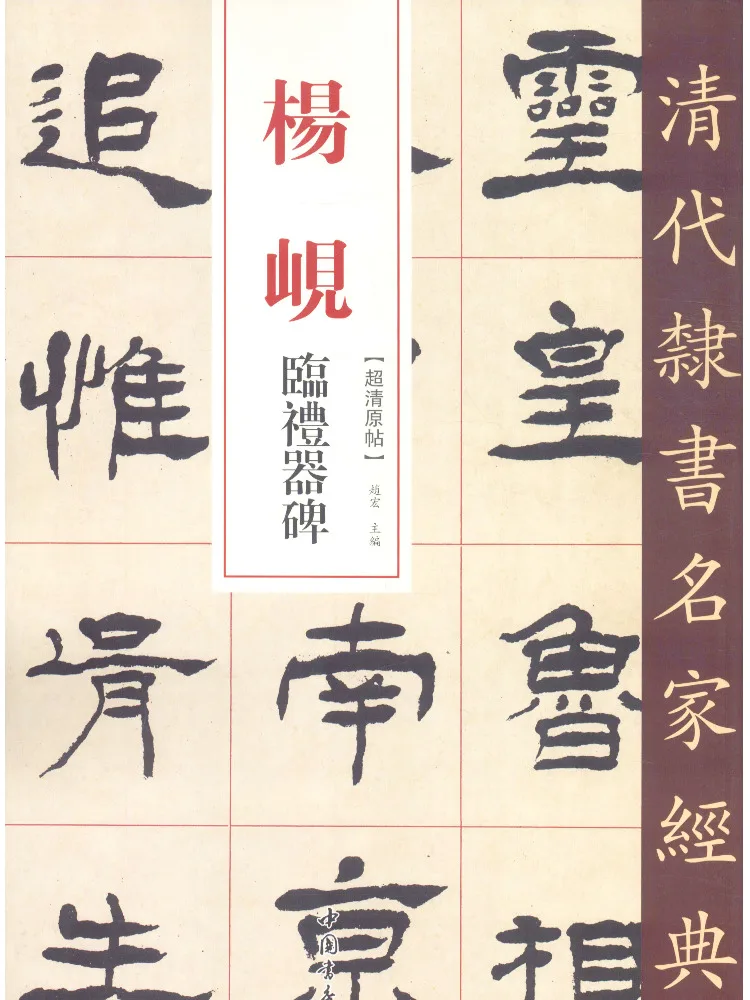 清代隸書名家經典
楊峴
臨禮器碑
【超清原帖】
趙宏 主編
靈皇魯相
南京
追惟胥生
中国書